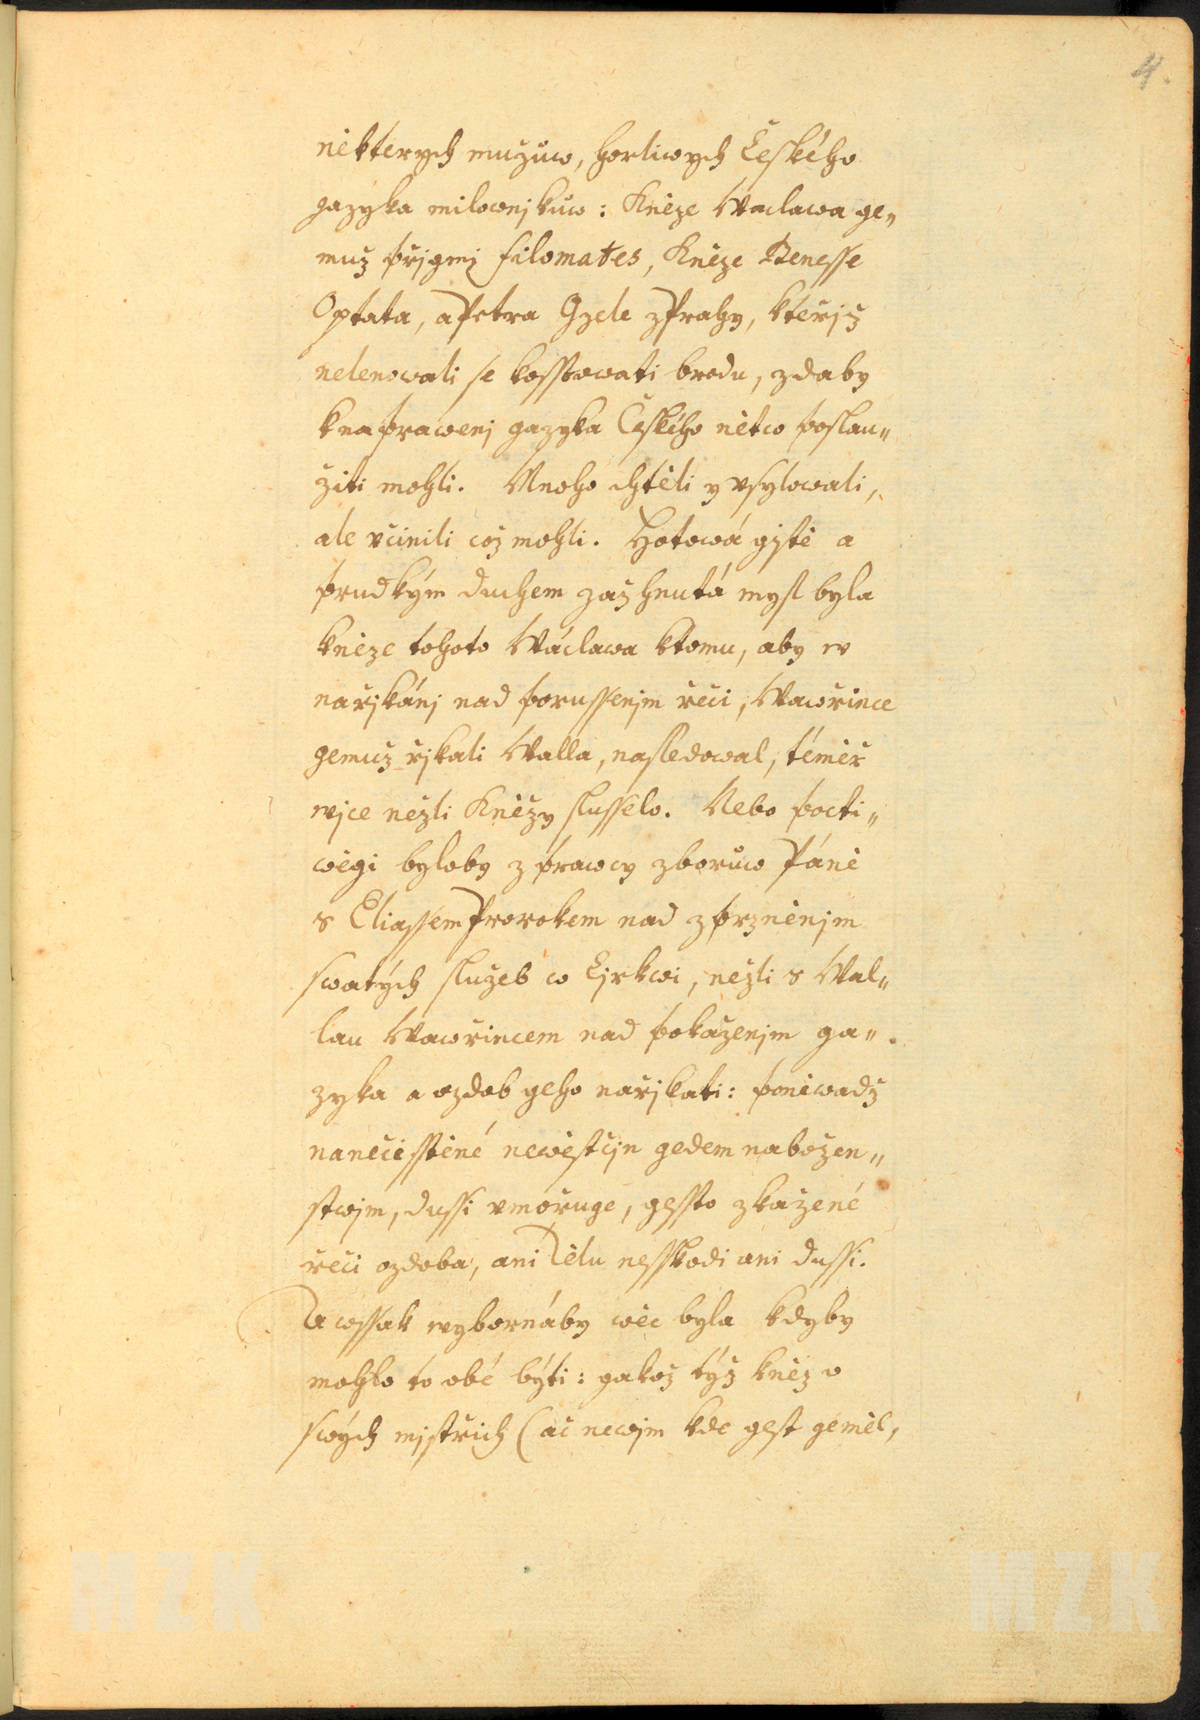 4.
některych mužuw, horliwych Českého
gazyka milownjkůw: Kněze Waclawa ge„
muž přjgmj Filomates, Kněze Benesse
Optata, a Petra Gzele z Prahy, kteřjž
nelenowali se kosstowati brodu, zdaby
k naprawenj gazyka Českého nětco poslau„
žiti mohli. Mnoho chtěli y vsylowali,
ale včinili což mohli. Hotowá gistě a
prudkým duchem zažhnutá mysl byla
kněze tohoto Wáclawa k tomu, aby w
nařjkánj nad porussenjm řeči, Wawřince
gemuž řjkali Walla, nasledowal, téměř
wjce nežli Kněžy slusselo. Nebo pocti„
wěgi byloby zpráwcy zboruw Páně
s Eliassem Prorokem nad zprzněnjm
swatých služeb w Cjrkwi, nežli s Wal„
lau Wawřincem nad pokaženjm ga„
zyka a ozdob geho nařjkati: poněwadž
nanečisstěné newěstčjn gedem nabožen„
stwjm, dussi vmořuge, gessto zkažené
řeči ozdoba, ani Tělu nesskodi ani dussi.
A wssak wybornáby wěc byla kdyby
mohlo to obé býti: gakož týž kněz o
swých mjstřich (ač newjm kde gest geměl,
MZK
MZK